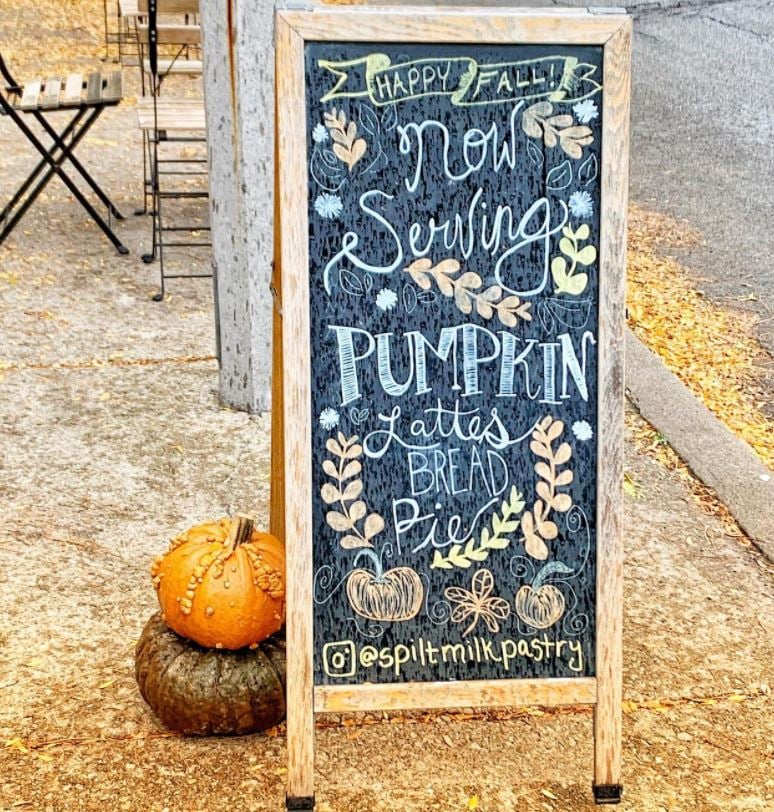 HAPPY FALL!
Now
Serving
PUMPKIN
Lattes
BREAD
Pie
@spiltmilkpastry